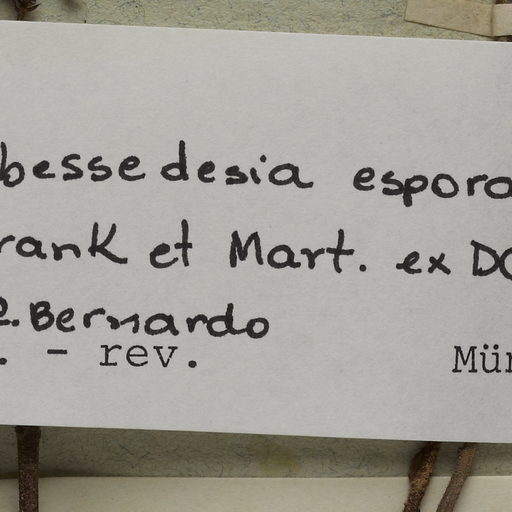 besse desia espora
rank et Mart. ex DC
. Bernardo
. - rev. Mün